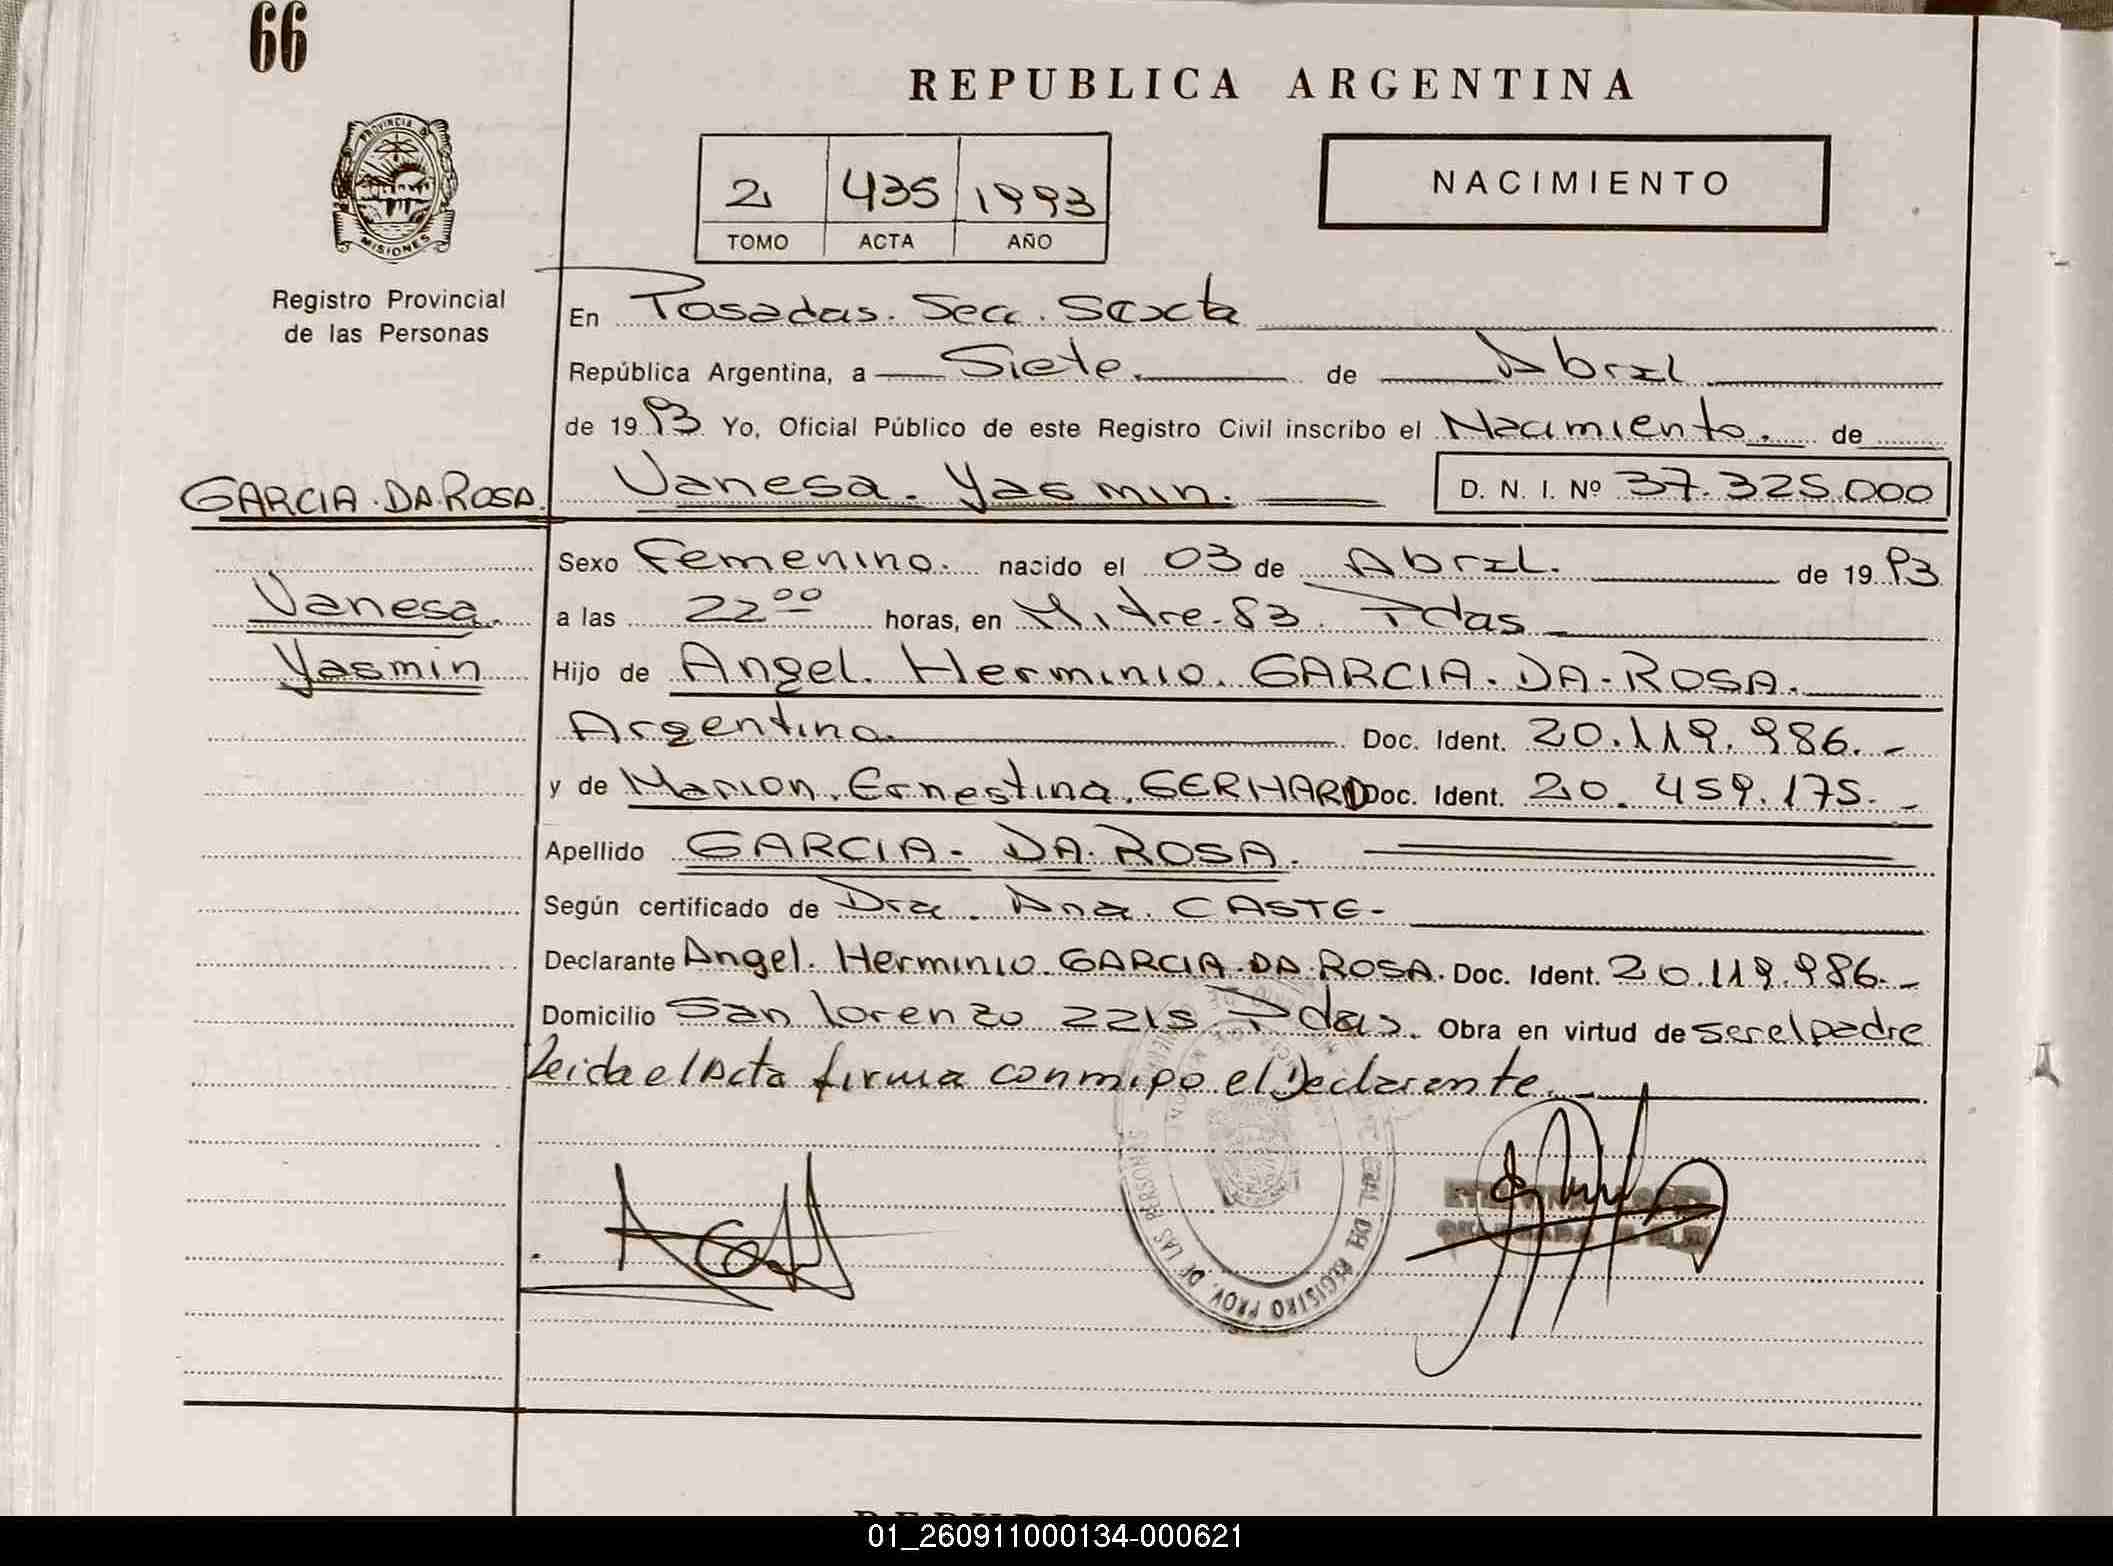 66
REPUBLICA ARGENTINA
PROVINCIA DE
MISIONES
2 435 1993
TOMO ACTA AÑO
NACIMIENTO
Registro Provincial
de las Personas
En Posadas. Secc. Sexta
República Argentina, a Siete. de Abril
de 1993 Yo, Oficial Público de este Registro Civil inscribo el Nacimiento. de
GARCIA. DA. ROSA. Vanesa. Yasmin. D. N. I. Nº 37.325.000
Sexo Femenino. nacido el 03 de Abril. de 1993
Vanesa. a las 22 00 horas, en Mitre. 83. Pdas
Yasmin Hijo de Angel. Herminio. GARCIA. DA. ROSA.
Argentino. Doc. Ident. 20.119.986.-
y de Marion. Ernestina. GERHARD Doc. Ident. 20.459.175.-
Apellido GARCIA. DA. ROSA.
Según certificado de Dra. Ana. CASTE-
Declarante Angel. Herminio. GARCIA. DA. ROSA. Doc. Ident. 20.119.986.-
Domicilio San Lorenzo 2215 Pdas. Obra en virtud de ser el padre
Leida el Acta firma conmigo el Declarante.
DEL REGISTRO PROV. DE LAS PERSONAS
01_260911000134-000621